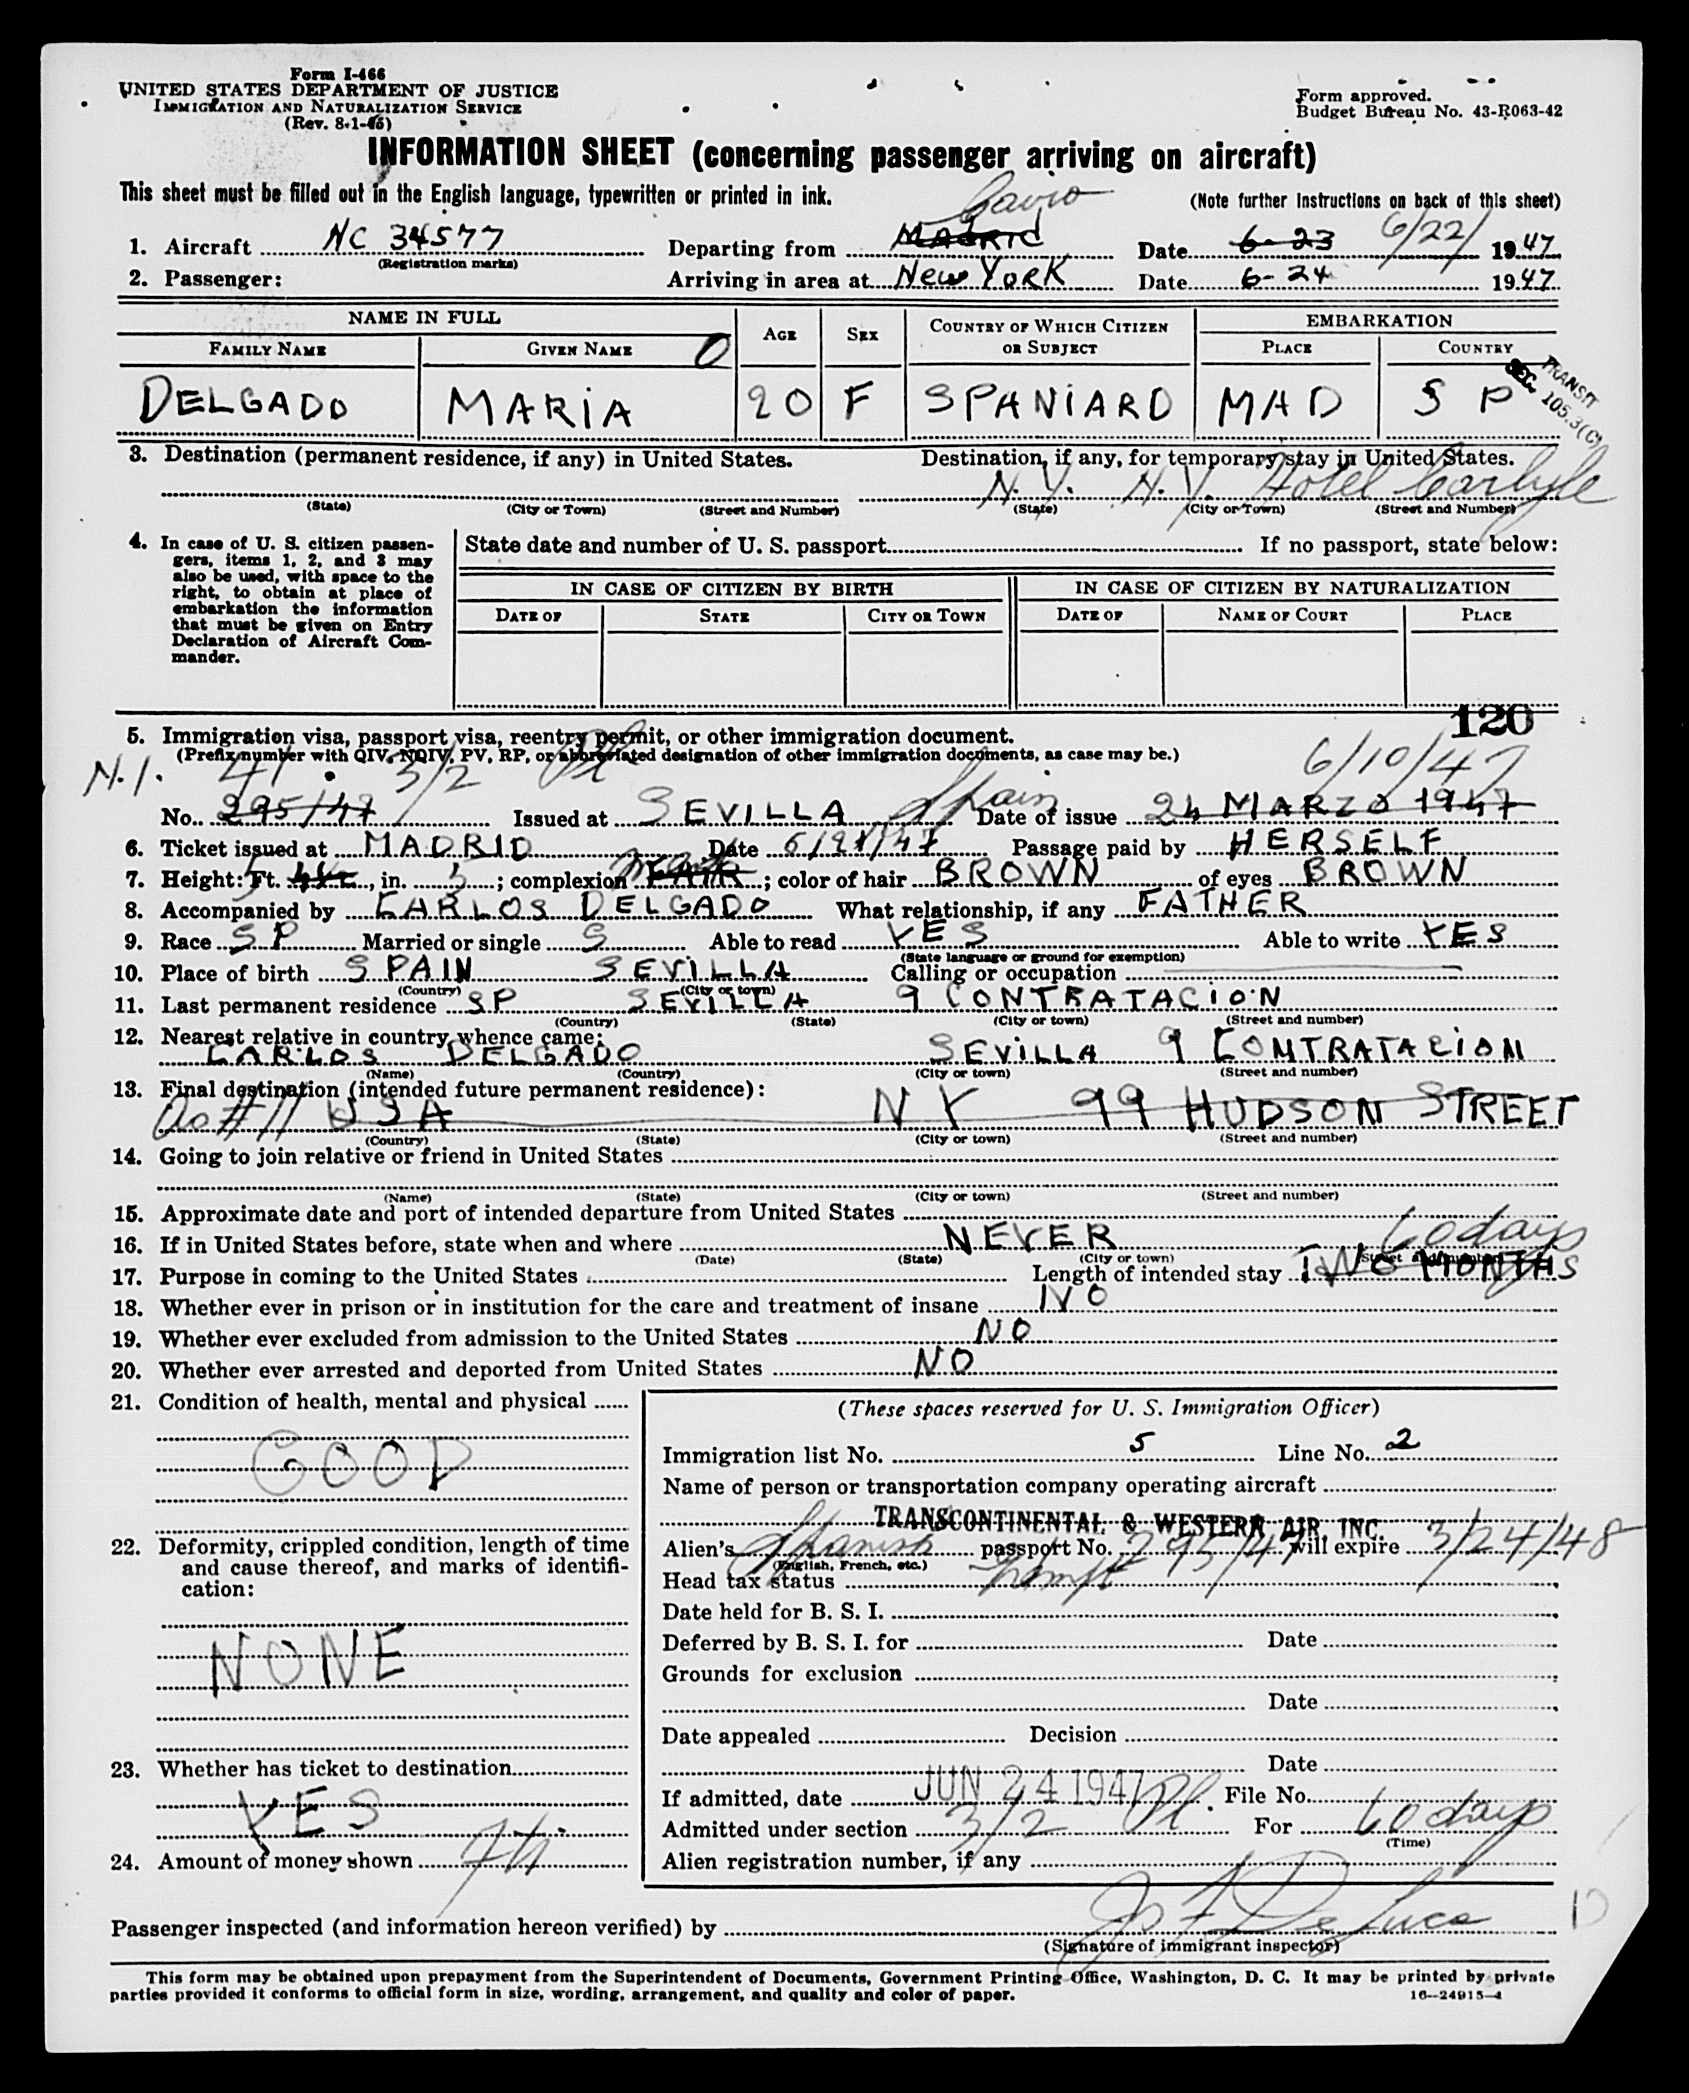 Form I-466
UNITED STATES DEPARTMENT OF JUSTICE
IMMIGRATION AND NATURALIZATION SERVICE
(Rev. 8-1-45)
Form approved.
Budget Bureau No. 43-R063-42
INFORMATION SHEET (concerning passenger arriving on aircraft)
This sheet must be filled out in the English language, typewritten or printed in ink.
(Note further instructions on back of this sheet)
Cairo
1. Aircraft NC 34577 Departing from MADRID Date 6-23 6/22/ 1947
(Registration marks)
2. Passenger: Arriving in area at New YORK Date 6-24 1947
NAME IN FULL AGE SEX COUNTRY OF WHICH CITIZEN OR SUBJECT EMBARKATION
FAMILY NAME GIVEN NAME O PLACE COUNTRY
DELGADO MARIA 20 F SPANIARD MAD SP
TRANSIT
SEC. 105.3(C)
3. Destination (permanent residence, if any) in United States. Destination, if any, for temporary stay in United States.
N.Y. N.Y. Hotel Carlyle
(State) (City or Town) (Street and Number) (State) (City or Town) (Street and Number)
4. In case of U. S. citizen passengers, items 1, 2, and 3 may also be used, with space to the right, to obtain at place of embarkation the information that must be given on Entry Declaration of Aircraft Commander.
State date and number of U. S. passport If no passport, state below:
IN CASE OF CITIZEN BY BIRTH IN CASE OF CITIZEN BY NATURALIZATION
DATE OF STATE CITY OR TOWN DATE OF NAME OF COURT PLACE
120
5. Immigration visa, passport visa, reentry permit, or other immigration document.
(Prefix number with QIV, NQIV, PV, RP, or abbreviated designation of other immigration documents, as case may be.)
N.I. 41 3/2 Pl 6/10/47
No. 295/47 Issued at SEVILLA Spain Date of issue 24 MARZO 1947
6. Ticket issued at MADRID Date 6/21/47 Passage paid by HERSELF
7. Height: Ft. 5, in. 5; complexion FAIR; color of hair BROWN of eyes BROWN
8. Accompanied by CARLOS DELGADO What relationship, if any FATHER
9. Race SP Married or single S Able to read YES Able to write YES
(State language or ground for exemption)
10. Place of birth SPAIN SEVILLA Calling or occupation
(Country) (City or town)
11. Last permanent residence SP SEVILLA 9 CONTRATACION
(Country) (State) (City or town) (Street and number)
12. Nearest relative in country whence came:
CARLOS DELGADO SEVILLA 9 CONTRATACION
(Name) (Country) (City or town) (Street and number)
13. Final destination (intended future permanent residence):
As #11 USA NY 99 HUDSON STREET
(Country) (State) (City or town) (Street and number)
14. Going to join relative or friend in United States
(Name) (State) (City or town) (Street and number)
15. Approximate date and port of intended departure from United States
60 days
16. If in United States before, state when and where NEVER
(Date) (State) (City or town) (Street and number)
17. Purpose in coming to the United States Length of intended stay TWO MONTHS
18. Whether ever in prison or in institution for the care and treatment of insane NO
19. Whether ever excluded from admission to the United States NO
20. Whether ever arrested and deported from United States NO
21. Condition of health, mental and physical
GOOD
22. Deformity, crippled condition, length of time and cause thereof, and marks of identification:
NONE
23. Whether has ticket to destination
YES
24. Amount of money shown
(These spaces reserved for U. S. Immigration Officer)
Immigration list No. 5 Line No. 2
Name of person or transportation company operating aircraft
TRANSCONTINENTAL & WESTERN AIR, INC.
Alien's Spanish passport No. 295/47 will expire 3/24/48
(English, French, etc.)
Head tax status Exempt
Date held for B. S. I.
Deferred by B. S. I. for Date
Grounds for exclusion
Date
Date appealed Decision
Date
If admitted, date JUN 24 1947 File No.
Admitted under section 3/2 Pl. For 60 days
(Time)
Alien registration number, if any
Passenger inspected (and information hereon verified) by Jos F De Luca
(Signature of immigrant inspector)
This form may be obtained upon prepayment from the Superintendent of Documents, Government Printing Office, Washington, D. C. It may be printed by private
parties provided it conforms to official form in size, wording, arrangement, and quality and color of paper.
16—24915-4